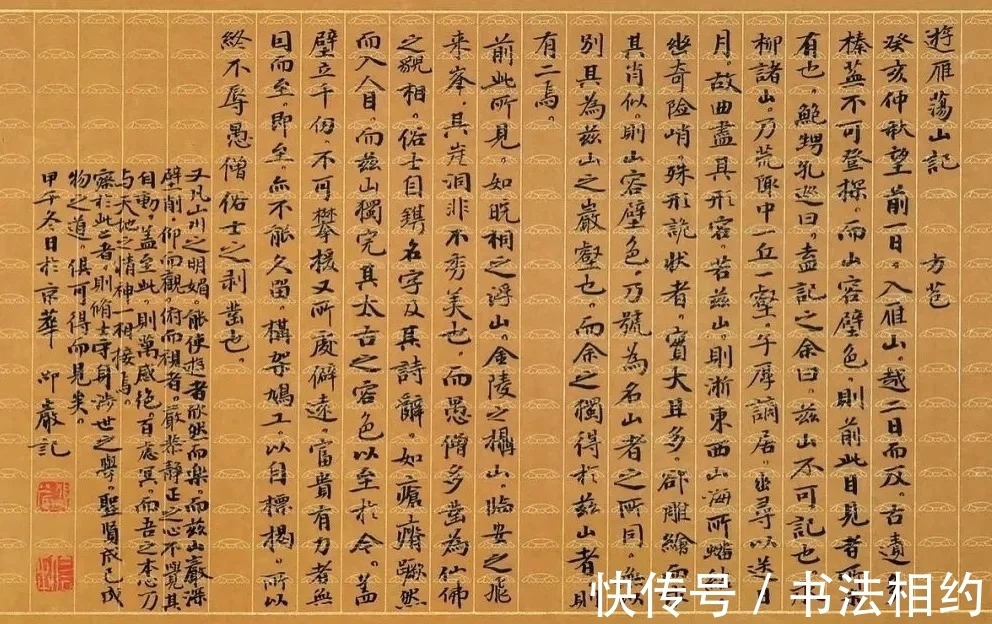 遊雁蕩山記 方苞
癸亥仲秋望前一日。入雁山。越二日而反。古蹟
榛蕪不可登探。而山容壁色。則前此目見者所
有也。鮑甥孔巡曰。盍記之。余曰。茲山不可記也。永
柳諸山。乃荒陬中一丘一壑。子厚謫居。幽尋以送
月。故曲盡其形容。若茲山。則浙東西山海所蟠結
幽奇險峭。殊形詭狀者。實大且多。欲雕繪而
其肖似。則山容壁色。乃號為名山者之所同。無以
別其為茲山之巖壑也。而余之獨得於茲山者。則
有二焉。
前此所見。如皖桐之浮山。金陵之攝山。臨安之飛
来峯。其崖洞非不秀美也。而愚僧多鑿為仙佛
之貌相。俗士自鐫名字及其詩辭。如瘡痏蹶然
而入人目。而茲山獨完其太古之容色以至於今。蓋
壁立千仞。不可攀援又所處僻遠。富貴有力者無
因而至。即至。亦不能久留。構架鳩工。以自標揭。所以
終不辱愚僧俗士之剥鑿也。
又凡山川之明媚。能使遊者欣然而樂。而茲山巖深
壁削。仰而觀。俯而視者。嚴恭靜正之心不覺其
自動。蓋至此。則萬感絕。百慮冥。而吾之本心乃
与天地之情神一相接焉。
察於此二者。則脩士守身涉世之學。聖賢成己成
物之道。俱可得而見矣。
甲子冬日於京華 巖記
快传号 / 书法相约